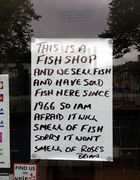 THIS IS A
FISH SHOP
AND WE SELL FISH
AND HAVE SOLD
FISH HERE SINCE
1966 SO I AM
AFRAID IT WILL
SMELL OF FISH
SORRY IT WONT
SMELL OF ROSES
BRIAN